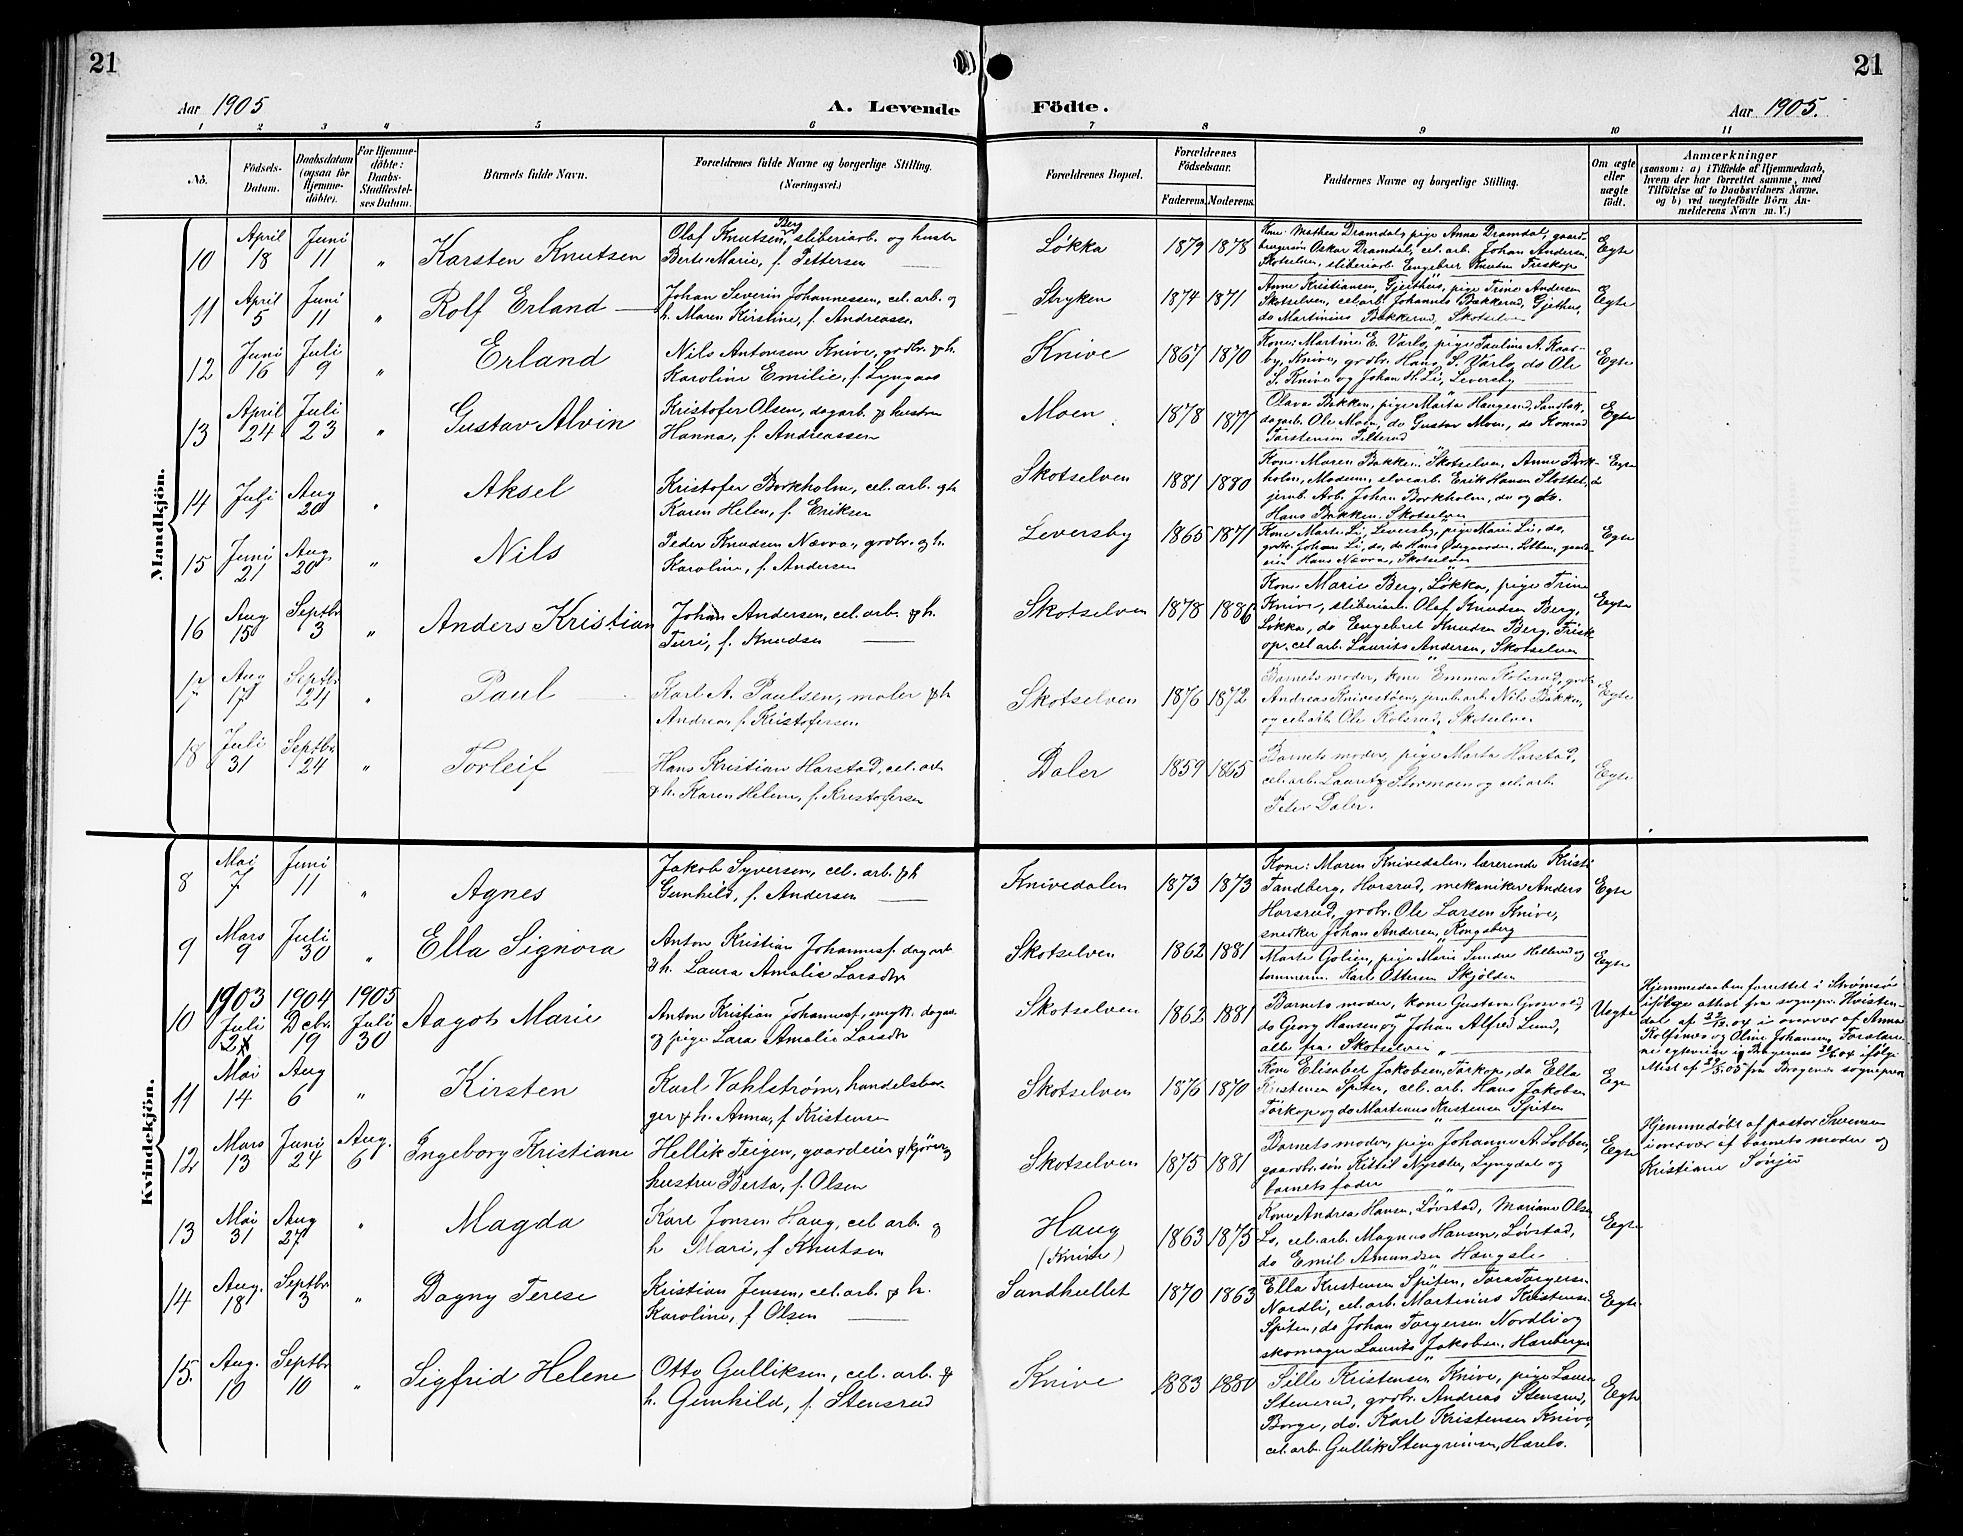 21
21
Aar 1905
A. Levende
Födte.
Aar 1905.
1 2 3 4 5 6 7 8 9 10 11
No.
Födsels-Datum.
Daabsdatum (ogsaa for Hjemmedöbte).
For Hjemmedöbte: Daabs-Stadfæstelses Datum.
Barnets fulde Navn.
Forældrenes fulde Navne og borgerlige Stilling.
(Næringsvei.)
Forældrenes Bopæl.
Forældrenes Födselsaar.
Faderens. Moderens.
Faddernes Navne og borgerlige Stilling.
Om ægte eller uægte födt.
Anmærkninger
(saasom: a) i Tilfælde af Hjemmedaab,
hvem der har forrettet samme, med
Tilföielse af to Daabsvidners Navne.
og b) ved uægtefödte Börn Anmelderens Navn m. V.)
Mandkjön.
10 April 18 Juni 11 " Karsten Knutsen
Olaf Knutsen Berg, sliberiarb. og hustr
Berte Marie, f. Pettersen
Løkka 1879 1878
Kone Mathea Dramdal, pige Anna Dramdal, gaard-
brugersøn Oskar Dramdal, cel. arb. Johan Andersen,
Skotselven, sliberiarb. Engebret Knutsen Friskop
Egte
11 April 5 Juni 11 " Rolf Erland
Johan Severin Johannessen, cel. arb. og
h. Maren Kirstine, f. Andreasse
Stryken 1874 1871
Anne Kristiansen, Gjeithus, pige Trine Andersen
Skotselven, cel. arb. Johannes Bakkerud, Gjethus,
do Martinius Bakkerud, Skotselven
Egte
12 Juni 16 Juli 9 " Erland
Nils Antonsen Knive, grdbr. & h.
Karoline Emilie, f. Lyngaas
Knive 1867 1870
Kone: Martine E. Varlo, pige Pauline A. Kaar-
by, Knive, grdbr. Hans S. Varlo, do Ole
S. Knive og Johan H. Li, Leversby
Egte
13 April 24 Juli 23 " Gustav Alvin
Kristofer Olsen, dagarb. & hustru
Hanna, f. Andreassen
Moen 1878 1877
Olava Bakken, pige Marta Haugerud, Sandbak,
dagarb. Ole Moen, do Gustav Moen, do Konrad
Torstensen Pilterud
Egte
14 Juli 1 Aug 20 " Aksel
Kristofer Borkholm, cel. arb. & h
Karen Helen, f. Eriksen
Skotselven 1881 1880
Kone: Maren Bakken, Skotselven, Anne Bork-
holm, Modum, elvearb. Erik Hansen Slottet,
jernb. Arb. Johan Borkholm, do og do.
Hans Bakken, Skotselven
Egte
15 Juni 21 Aug 20 " Nils
Peder Knudsen Nævra, grdbr. og h.
Karoline, f. Andersen
Leversby 1865 1871
Kone Marte Li, Leversby, pige Marie Li, do,
grdbr. Johan Li, do, do Hans Ødegaarden, Lobben, gaard-
søn Hans Nævra, Skotselven
Egte
16 Aug 15 Septbr 3 " Anders Kristian
Johan Andersen, cel. arb. & h.
Turi, f. Knudsen
Skotselven 1878 1886
Kone Marie Berg, Løkka, pige Trine
Knive, sliberiarb. Olaf Knudsen Berg,
Løkka, do Engebret Knudsen Berg, Frisk
op, cel arb. Laurits Andersen, Skotselven
Egte
17 Aug 17 Septbr 24 " Paul
Karl A. Paulsen, maler & h
Andrea, f. Kristofersen
Skotselven 1876 1872
Barnets moder, kone Emma Kolsrud, grdb.
Andreas Knivestøen, jernb. arb Nils Bakken,
og cel. arb. Ole Kolsrud, Skotselven
Egte
18 Juli 31 Septbr. 24 " Torleif
Hans Kristian Harstad, cel. arb
& h. Karen Helene, f. Kristofersen
Daler 1859 1865
Barnets moder, pige Marta Harstad,
cel. arb. Lauritz Stormoen og cel. arb.
Peter Daler.
Egte
Kvindekjön.
8 Mai 7 Juni 11 " Agnes
Jakob Syversen, cel. arb. & h
Gunhild, f. Andersen
Knivedalen 1873 1873
Kone: Maren Knivedalen, lærerinde Kristi
Tandberg, Horsrud, mekaniker Anders
Horsrud, grdbr. Ole Larsen Knive,
snekker Johan Andersen, Kongsberg
Egte
9 Mars 9 Juli 30 " Ella Signora
Anton Kristian Johannesf. dagarb
& h. Laura Amalie Larsdtr
Skotselven 1862 1881
Marte Golien, pige Marie Sundre Hellerud og
tømmerm. Karl Ottersen Skjølden
Egte
10 1903 Juli 2 1904 Dcbr. 19 1905 Juli 30 Aagot Marie
Anton Kristian Johannesf., ungk. dagar.
og pige Lara Amalie Larsdtr
Skotselven 1862 1881
Barnets moder, kone Gustava Grosvold,
do Georg Hansen og Johan Alfred Lund,
alle fra Skotselven
Uegte
Hjemmedaaben forrettet i Strømsø
ifølge attest fra sognepr. Hvisten-
dal af 22/12.04 i overvær af Anna
Rolfsnes og Oline Johansen, Forældre-
ne egteviede i Bragernes 26/6 04 ifølg
Attest af 29/5.05 fra Bragernes sogneprest
11 Mai 14 Aug 6 " Kirsten
Karl Vahlstrøm, handelsbor
ger & h. Anna, f Kristensen
Skotselven 1876 1870
Kone Elisabet Jakobsen, Torkop, do Ella
Kirstensen Spiten, cel. arb. Hans Jakobsen
Torkop og do Martinus Kristensen Spiten
Ege
12 Mars 13 Juni 24 Aug. 6 Ingeborg Kristiane
Hellik Teigen, gaardeier & kjører og
hustru Berta, f. Olsen
Skotselven 1875 1881
Barnets moder, pige Johanne A. Lobben,
gaardbr.søn Kittil Nyseter, Lyngdal og
barnets fader
Egte
Hjemmedøbt af pastor Svensen
i overvær af barnets moder og
Kristiane Sønju
13 Mai 31 Aug 27 " Magda
Karl Jonsen Haug, cel arb. og
h Mari, f Knutsen
Haug
(Knive)
1863 1875
Kone Andrea Hansen, Løvstad, Mariane Olse
Lo, cel. arb. Magnus Hansen, Løvstad,
do Emil Amundsen Hængsle
Egte
14 Aug. 18 Septbr 3 " Dagny Terese
Kristian Jensen, cel. arb. & h.
Karoline, f Olsen
Sandhullet 1870 1863
Ella Kristensen Spiten, Tora Torgersen
Nordli, cel. arb. Martinius Kristensen
Spiten, do Johan Torgersen Nordli og
skomager Laurits Jakobsen, Hæreberget
Egte
15. Aug. 10 Septbr 10 " Sigfrid Helene
Otto Gulliksen, cel. arb. &
h. Gunhild, f. Stensrud
Knive 1883 1880
Sille Kristensen Knive, pige Laura
Stenerud, grdbr. Andreas Stensrud,
Borge, do. Karl Kristensen Knive,
cel. arb. Gullik Stengrimsen, Hærelo.
Egte